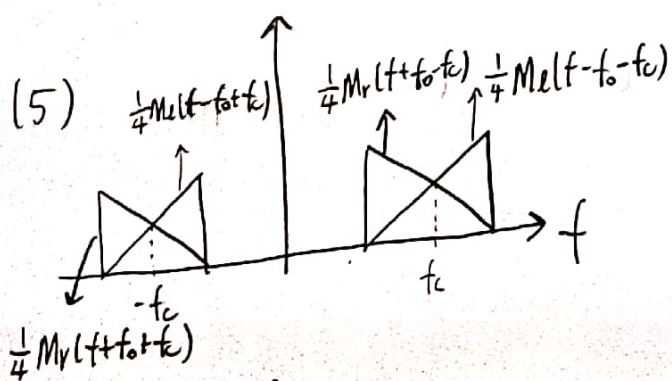 (5)
1/4 Me(f-f₀+f_c)
1/4 Mr(f+f₀-f_c) 1/4 Me(f-f₀-f_c)
f
-f_c
f_c
1/4 Mr(f+f₀+f_c)